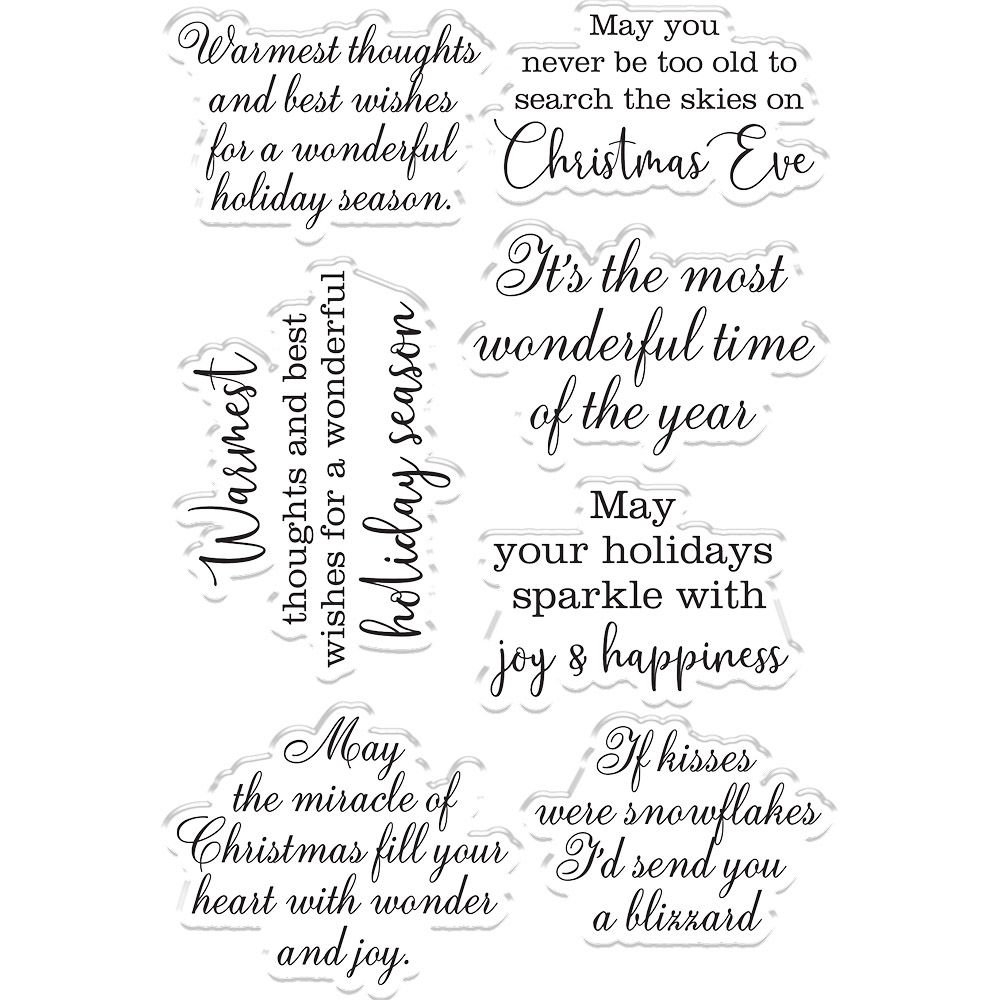 Warmest thoughts
and best wishes
for a wonderful
holiday season.
May you
never be too old to
search the skies on
Christmas Eve
It's the most
wonderful time
of the year
Warmest
thoughts and best
wishes for a wonderful
holiday season
May
your holidays
sparkle with
joy & happiness
May
the miracle of
Christmas fill your
heart with wonder
and joy.
If kisses
were snowflakes
I'd send you
a blizzard